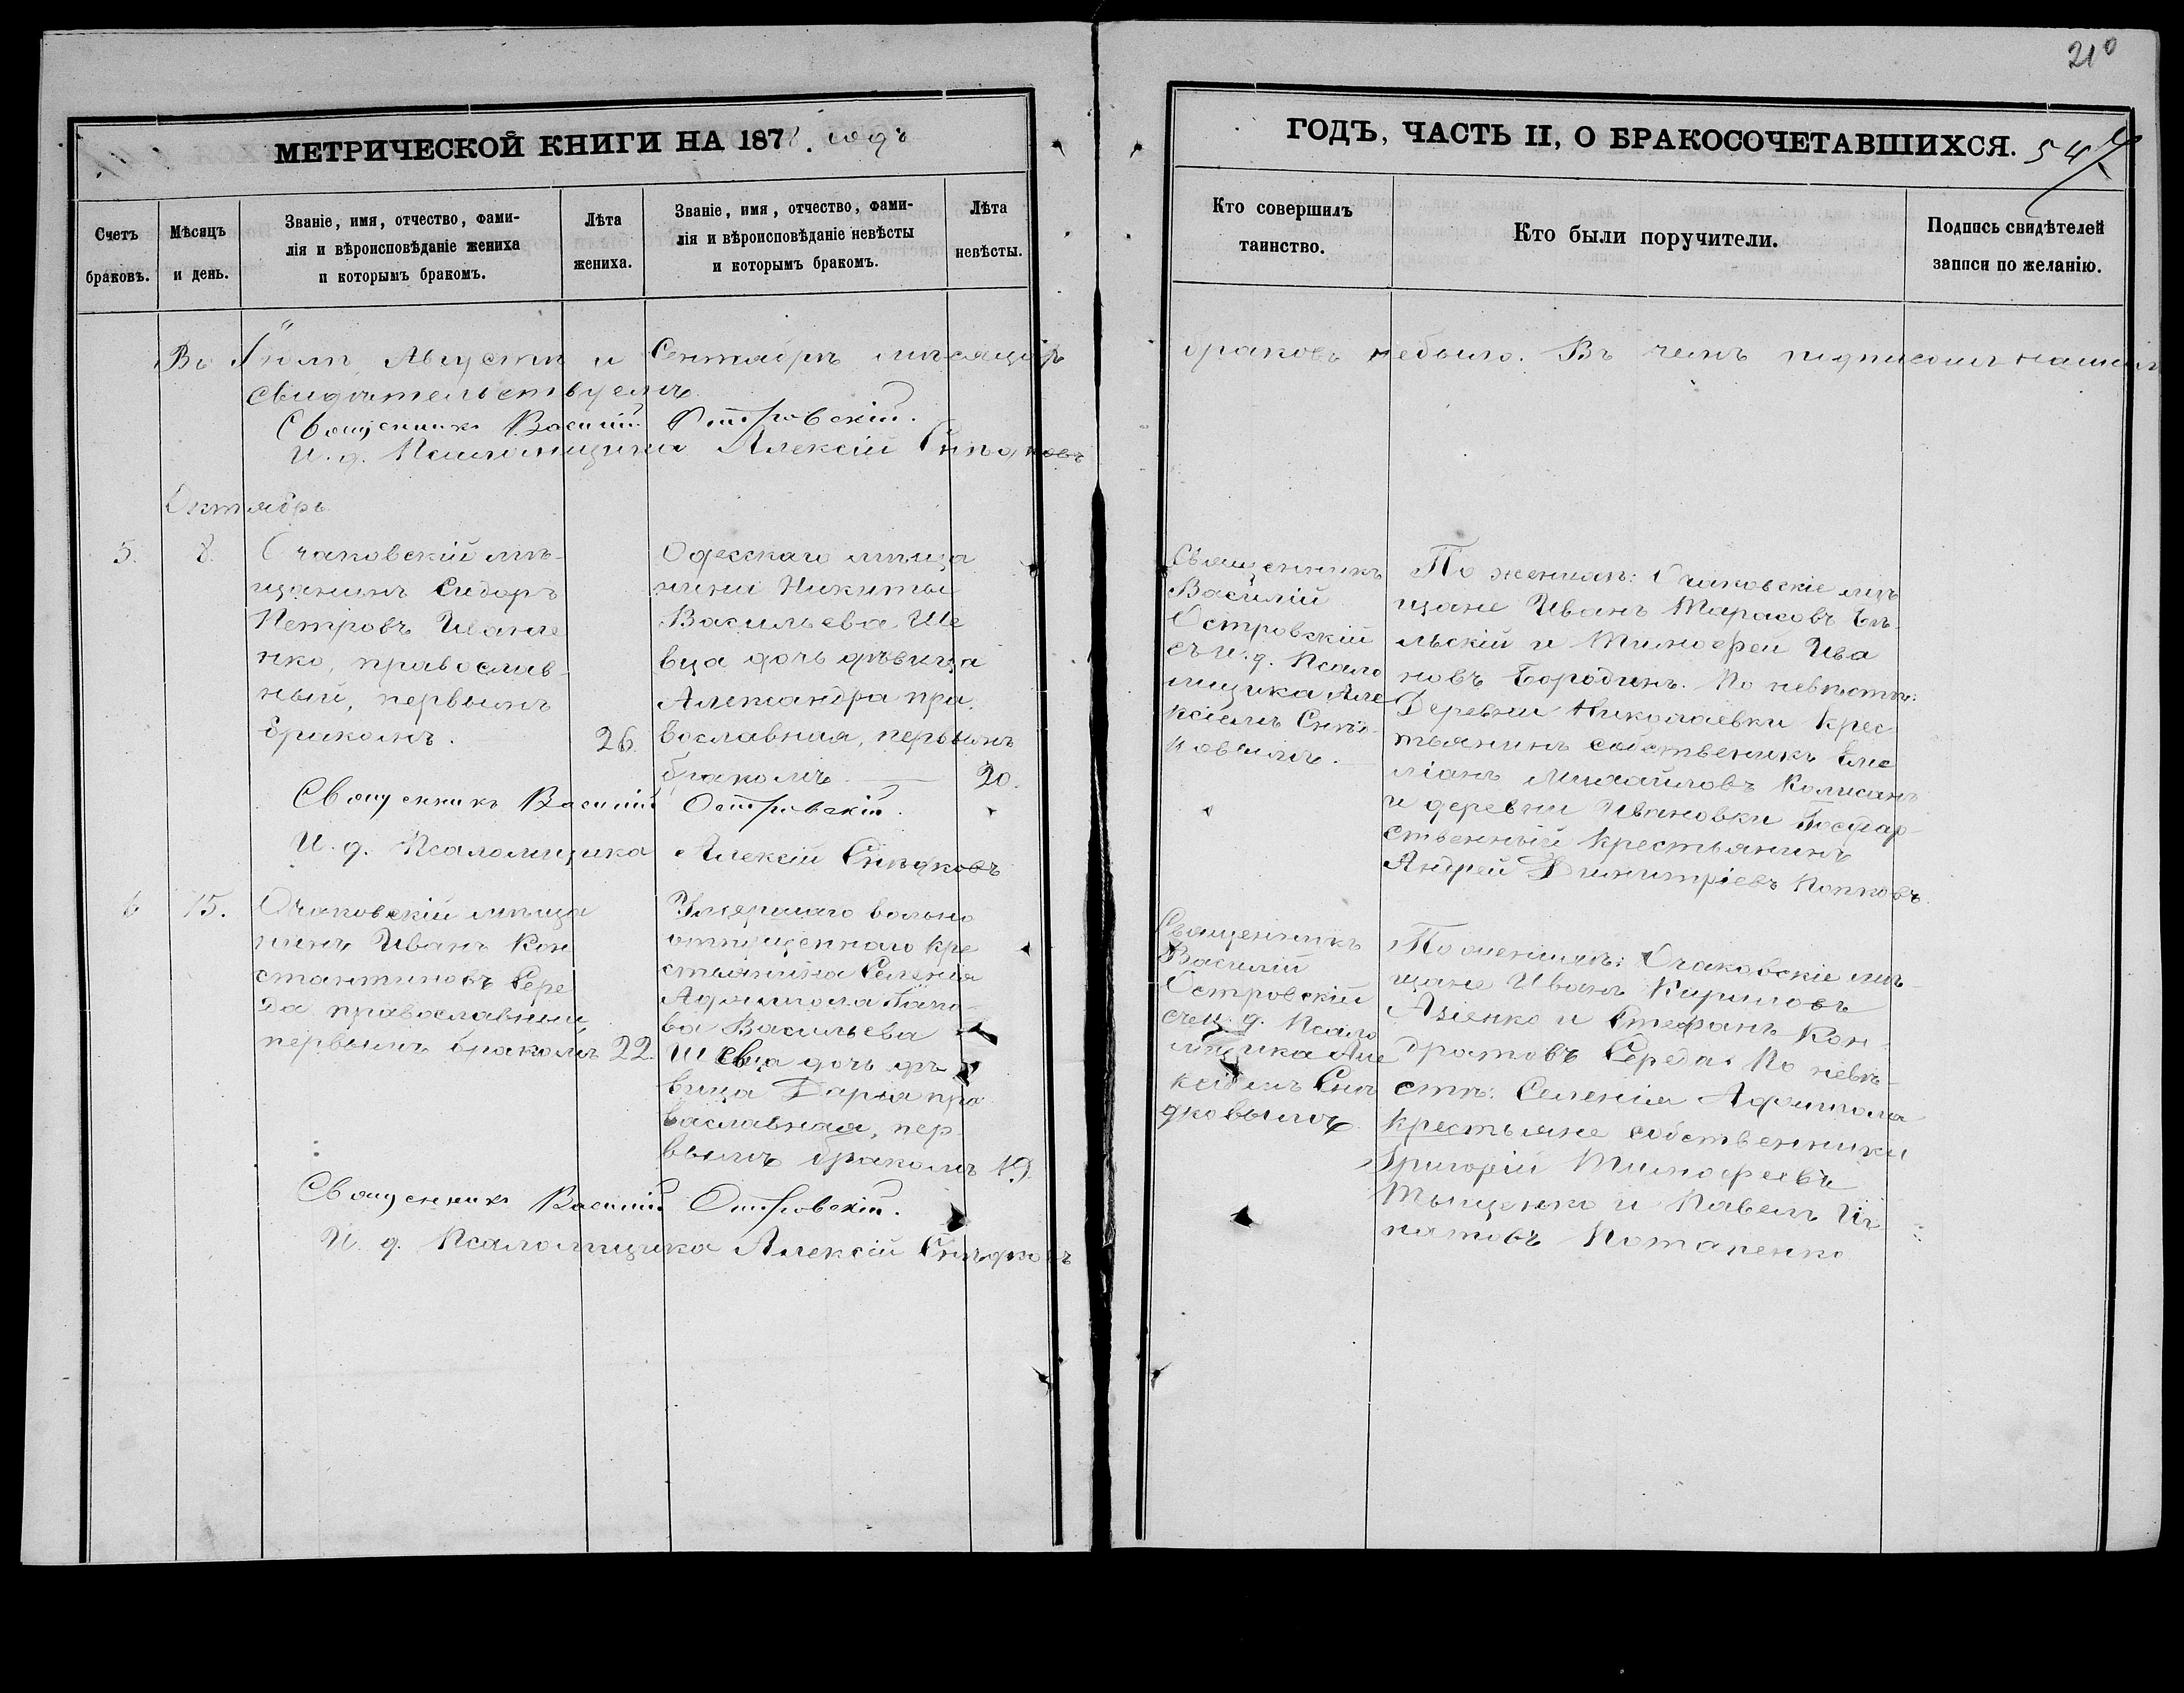 210
МЕТРИЧЕСКОЙ КНИГИ НА 1878. годъ
ГОДЪ, ЧАСТЬ II, О БРАКОСОЧЕТАВШИХСЯ.
Счетъ
браковъ.
Мѣсяцъ
и день.
Званіе, имя, отчество, фами-
лія и вѣроисповѣданіе жениха
и которымъ бракомъ.
Лѣта
жениха.
Званіе, имя, отчество, фами-
лія и вѣроисповѣданіе невѣсты
и которымъ бракомъ.
Лѣта
невѣсты.
Кто совершилъ
таинство.
Кто были поручители.
Подпись свидѣтелей
записи по желанію.
Въ Іюлѣ, Августѣ и Сентябрѣ мѣсяцѣ браковъ небыло. Въ чемъ
свидѣтельствуемъ
Священникъ Василій Островскій.
И. д. Псаломщика Алексій
Октябрь
5.
8.
Очаковскій мѣ-
щанинъ Сидоръ
Петровъ Иване
нко, православ-
ный, первымъ
бракомъ.
26.
Одесскаго мѣща
нина Никиты
Васильева Ше
вца дочь дѣвица
Александра пра
вославная, первымъ
бракомъ.
20.
Священникъ
Василій
Островскій
съ и. д. Псало
мщика Але
ксіемъ
ковымъ.
По женихѣ: Очаковскіе мѣ
щане Иванъ Тарасовъ Бѣ-
льскій и Тимофей Ива
новъ Бородинъ. По невѣстѣ:
Деревни Николаевки крес
тьянинъ собственикъ Еме
ліанъ Михайловъ
и деревни Ивановки Государ-
ственный крестьянинъ
Андрей Димитріевъ Попковъ.
Священникъ Василій Островскій.
И. д. Псаломщика Алексій
6
15.
Очаковскій мѣща
нинъ Иванъ Кон
стантиновъ Сере
да православный
первымъ бракомъ
22.
Умершаго вольно
отпущеннаго кре
стьянина Селенія
Аджигола Іако
ва Васильева
Шевца дочь дѣ
вица Дарія пра
вославная, пер
вымъ бракомъ
19.
Священникъ
Василій
Островскій
съ и. д. Псало
мщика Але
ксіемъ
дковымъ
По женихѣ: Очаковскіе мѣ-
щане Иванъ Кириловъ
и Стефанъ Кон-
дратовъ Середа. По невѣ-
стѣ: Селенія Аджигола
крестьяне собственники
Григорій Тимофеевъ
Тыщенко и Павелъ Иг
натовъ Потапенко
Священникъ Василій Островскій.
И. д. Псаломщика Алексій